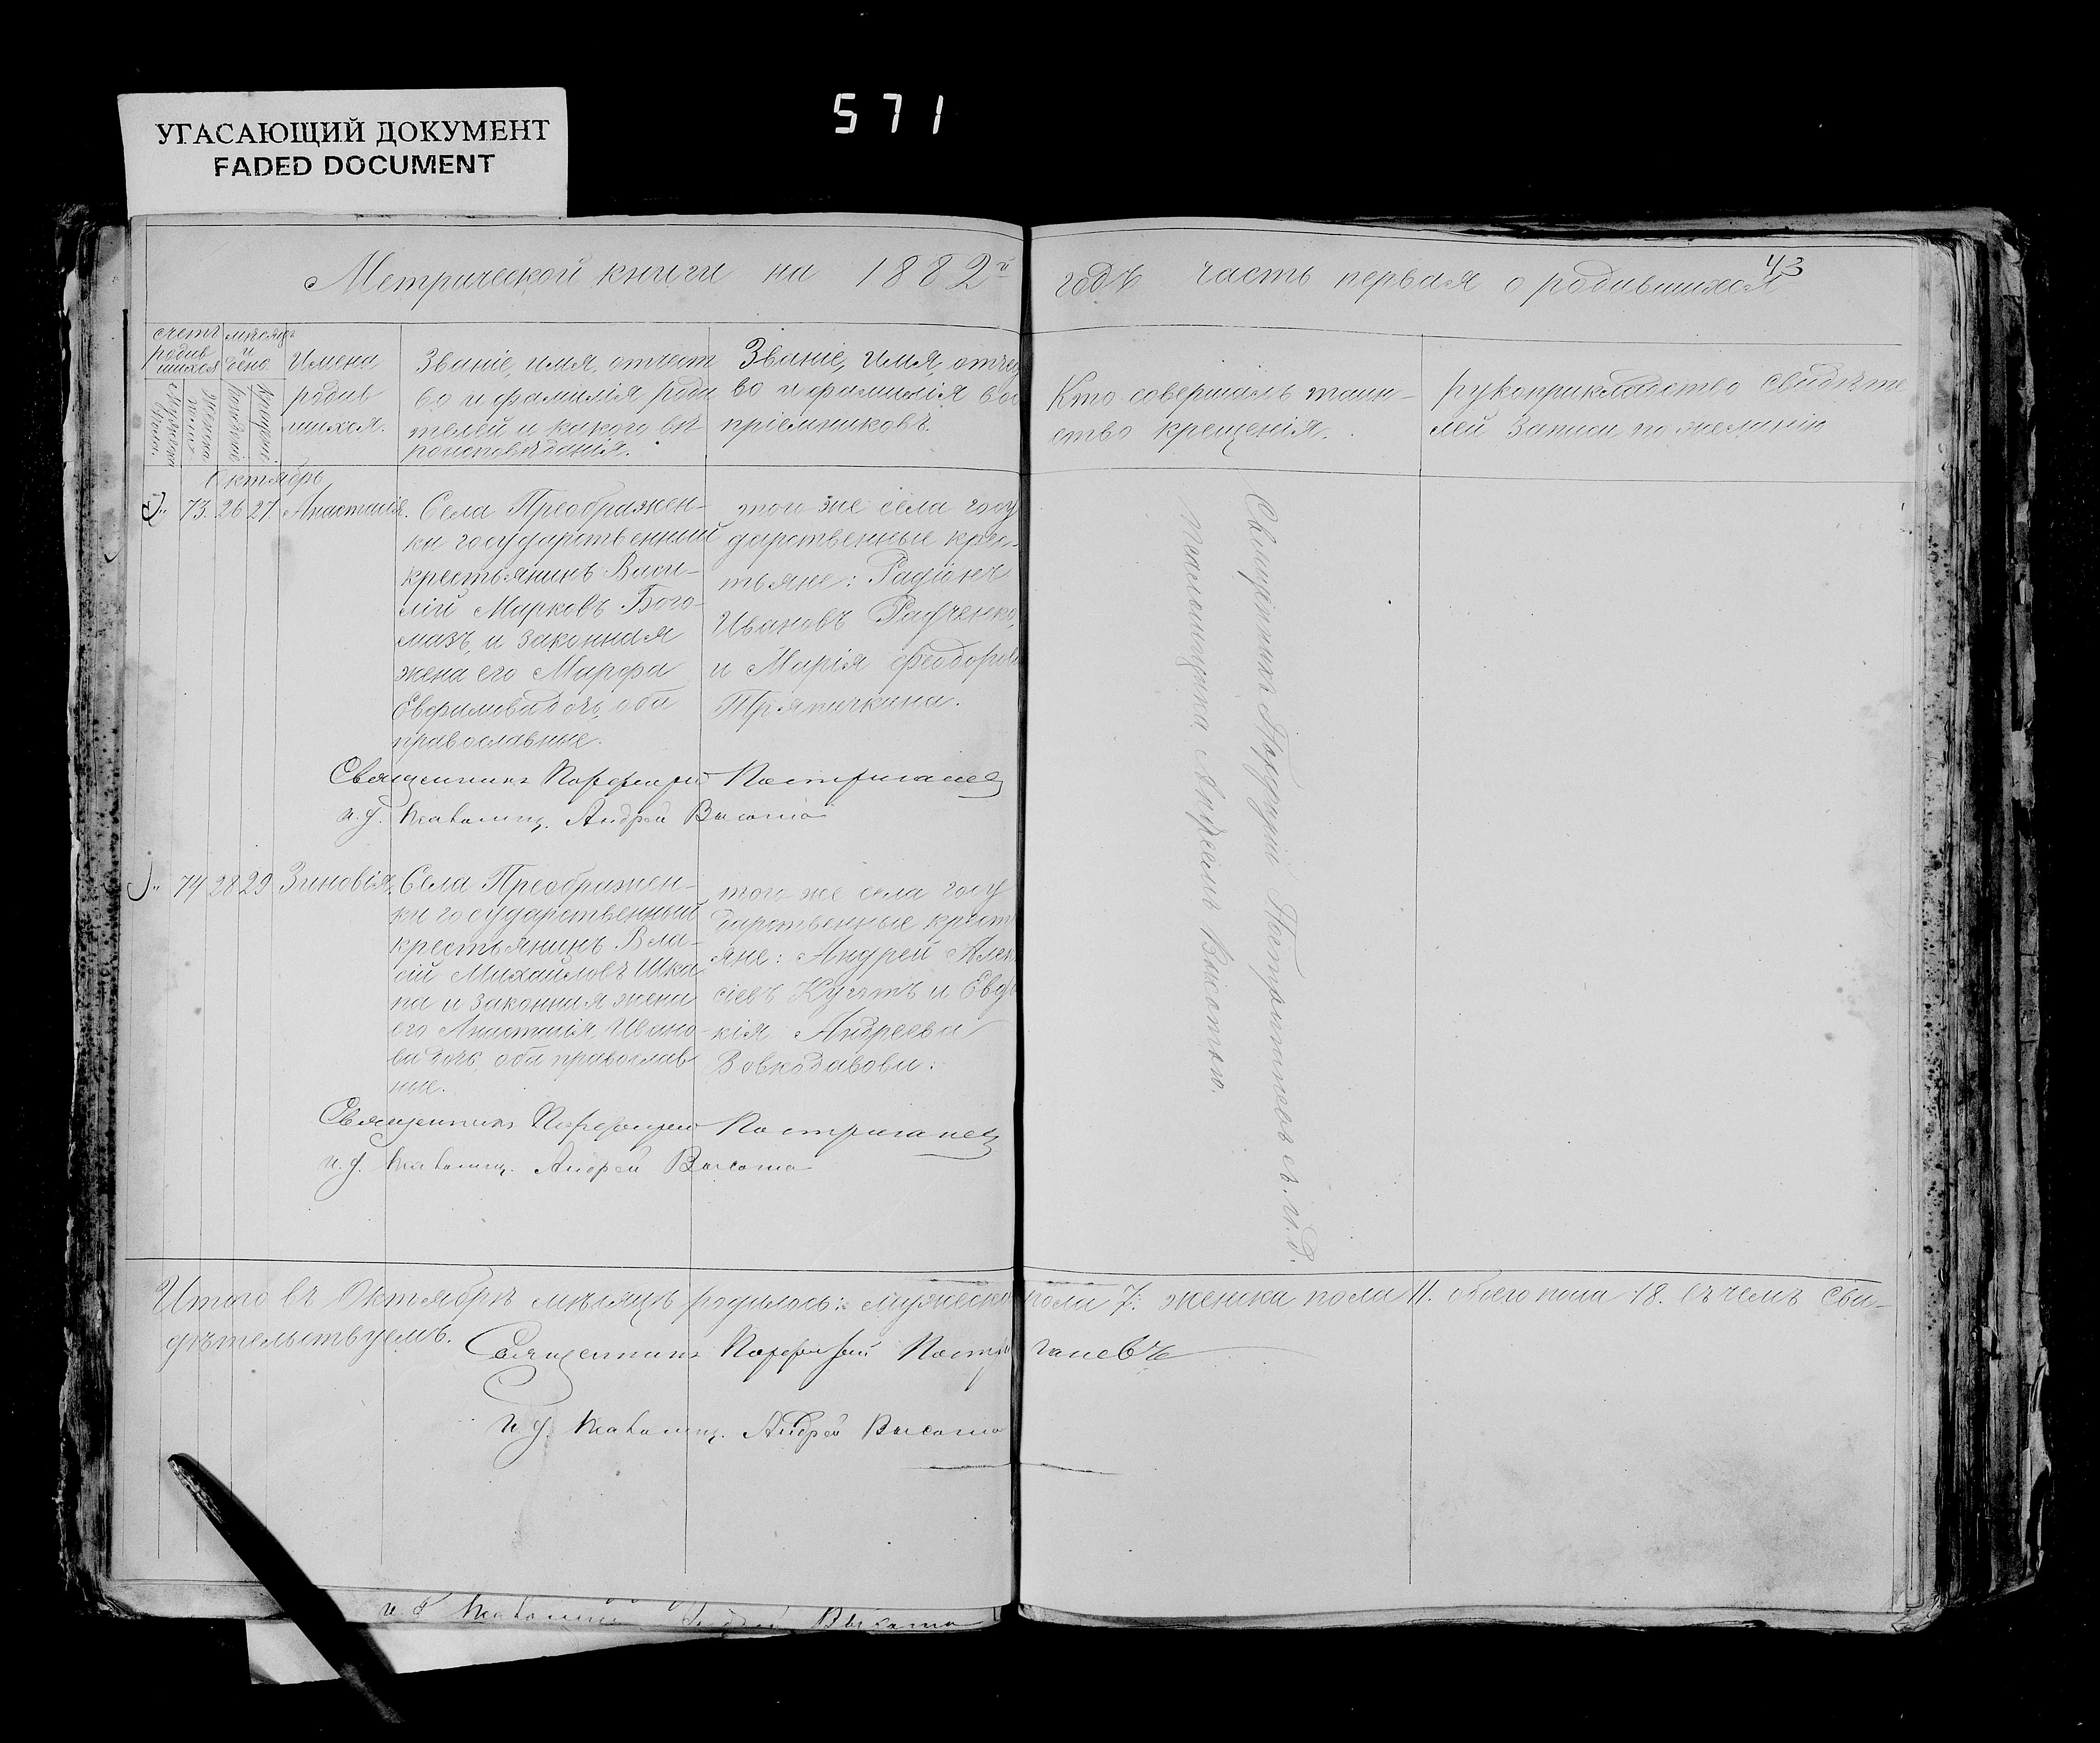 УГАСАЮЩИЙ ДОКУМЕНТ
FADED DOCUMENT
571
Метрической книги на 1882й годъ часть первая о родившихся
43
счетъ родив шихся
мѣсяцъ и день
Мужеска пола
Женска пола
рожденія
Крещенія
Имена
родив
шихся.
Званіе, имя, отчест
во и фамилія роди
телей и какого вѣ
роисповѣданія.
Званіе, имя, отче
во и фамилія вос
пріемниковъ.
Кто совершалъ таин-
ство крещенія.
рукоприкладство свидѣте
лей записи по желанію
Октябрь
73. 26 27. Анастасія.
Села Преображен-
ки государственный
крестьянинъ Васи-
лій Марковъ Бого-
мазъ, и законная
жена его Марфа
Евфимова дочь, оба
православные.
того же села госу
дарственные крес-
тьяне: Радіонъ
Ивановъ Радченко,
и Марія Феодоров
Тряпичкина.
Священникъ Порфирій Постриганев
и. д. псаломщ. Андрей Высота
74 28 29 Зиновія.
Села Преображен-
ки государственный
крестьянинъ Вла-
сій Михайловъ Шка
па и законная жена
его Анастасія Ивано-
ва дочь, оба православ
ные.
того же села госу
дарственные крест
яне: Андрей Алек
сіевъ Кугатъ и Евдо
кія Андреева
Вовкодавова.
Священникъ Порфирій Постриганев
и. д. псаломщ. Андрей Высота
Священникъ Порфирій Постриганевъ съ и. д.
псаломщика Андреемъ Высотою.
Итого въ Октябрѣ мѣсяцѣ родилось: мужеска пола 7. женска пола 11. обоего пола 18. въ чемъ сви-
дѣтельствуемъ.
Священникъ Порфирій Постриганевъ
и д. псаломщ. Андрей Высота
и д псаломщ Андрей Высота